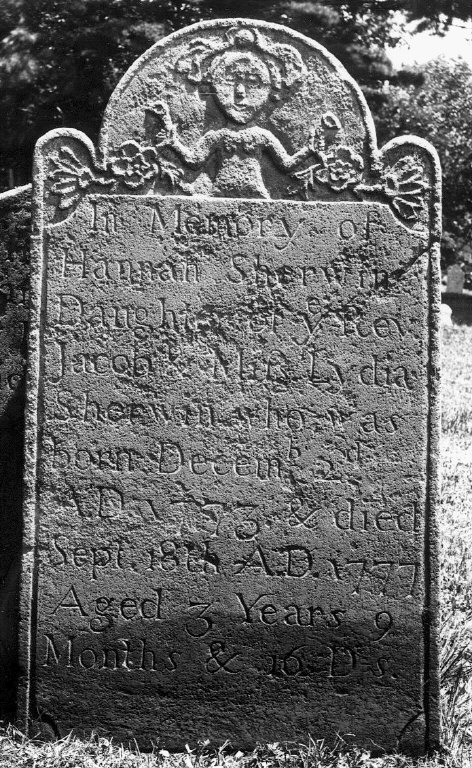 In Memory of
Hannah Sherwin
Daughter of yͤ Revͩ
Jacob & Mrs Lydia
Sherwin who was
born Decemᵇ 2ᵈ
A.D. 1773 & died
Sept. 18th A.D. 1777
Aged 3 Years 9
Months & 16 Dˢ.